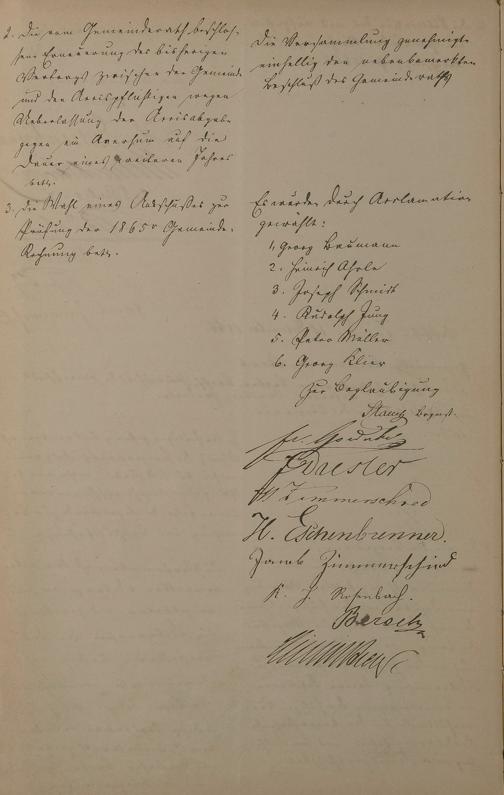 2. Die vom Gemeinderath beschlos-
sene Erneuerung des bisherigen
Vertrags zwischen der Gemeinde
und den Accispflichtigen wegen
Ueberlassung der Accisabgabe
gegen ein Aversum auf die
Dauer eines weiteren Jahres
betr.
Die Versammlung genehmigte
einhellig den nebenbemerkten
Beschluß des Gemeinderaths
3. die Wahl eines Ausschusses zur
Prüfung der 1865r Gemeinde-
Rechnung betr.
Es wurden durch Acclamation
gewählt:
1, Georg Baumann
2. Heinrich
3. Joseph Schmidt
4. Rudolph Jung
5. Peter Müller
6. Georg Klier
Zur Beglaubigung
Stamm Bürgerst.
Dresler
Zimmerschied
H. Eschenbrenner.
Jacob Zimmerschied
K. H. Rosenbach.